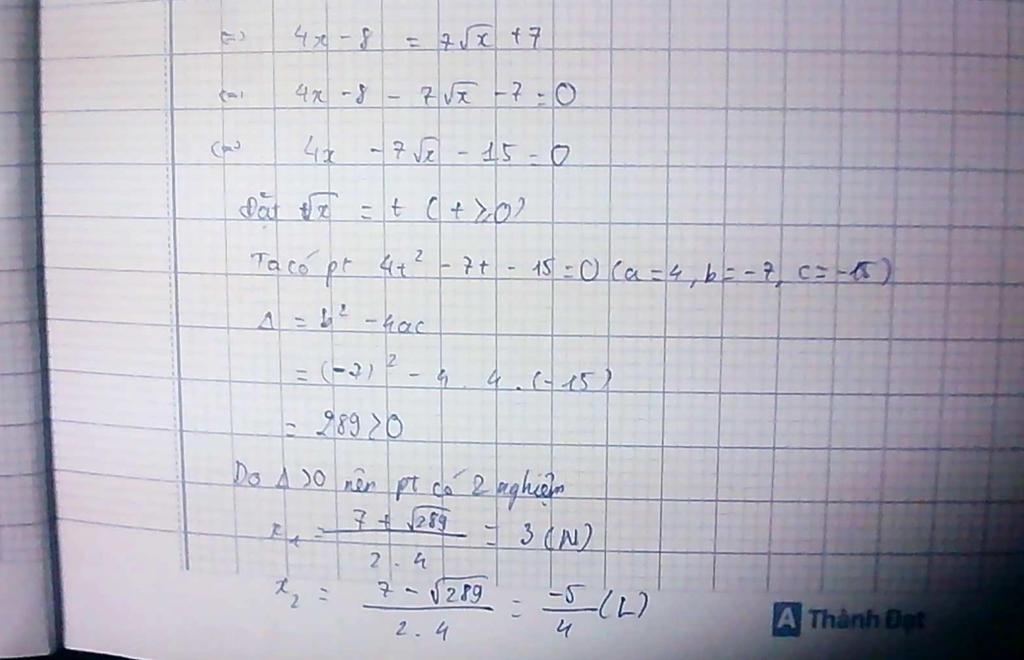 <=> 4x - 8 = 7√x + 7
<=> 4x - 8 - 7√x - 7 = 0
<=> 4x - 7√x - 15 = 0
Đặt √x = t (t ≥ 0)
Ta có pt 4t² - 7t - 15 = 0 (a = 4, b = -7, c = -15)
Δ = b² - 4ac
= (-7)² - 4 . 4 . (-15)
= 289 > 0
Do Δ > 0 nên pt có 2 nghiệm
x₁ = (7 + √289) / (2 . 4) = 3 (N)
x₂ = (7 - √289) / (2 . 4) = -5/4 (L)
A Thành Đạt